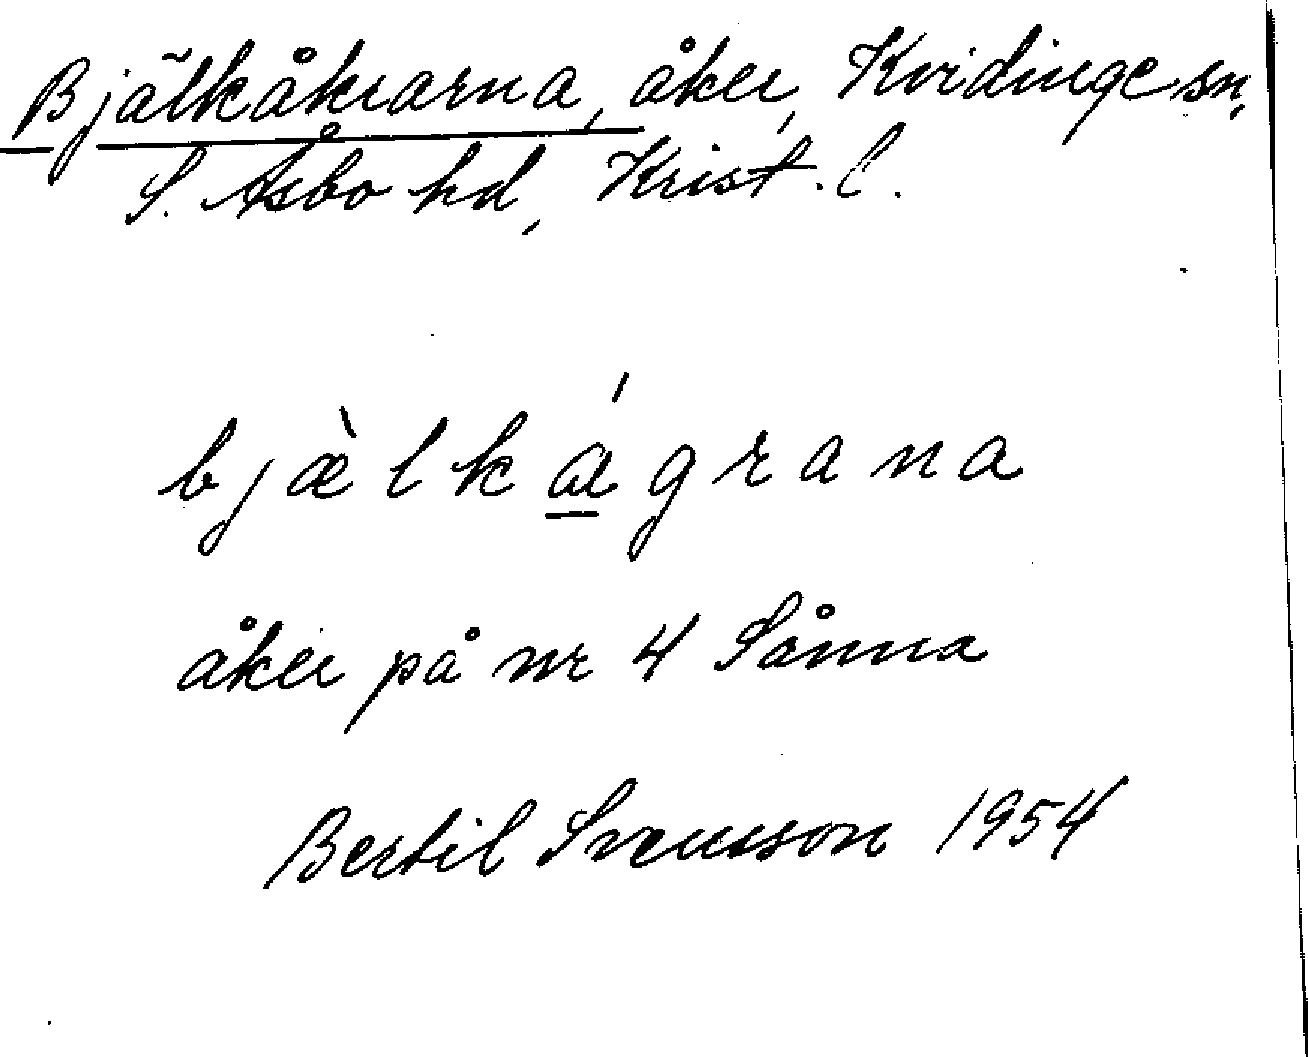 Bjälkåkrarna, åker, Kvidinge sn,
S. Åsbo hd, Krist. l.
bjæ̀lkágrana
åker på nr 4 Sånna
Bertil Svensson 1954